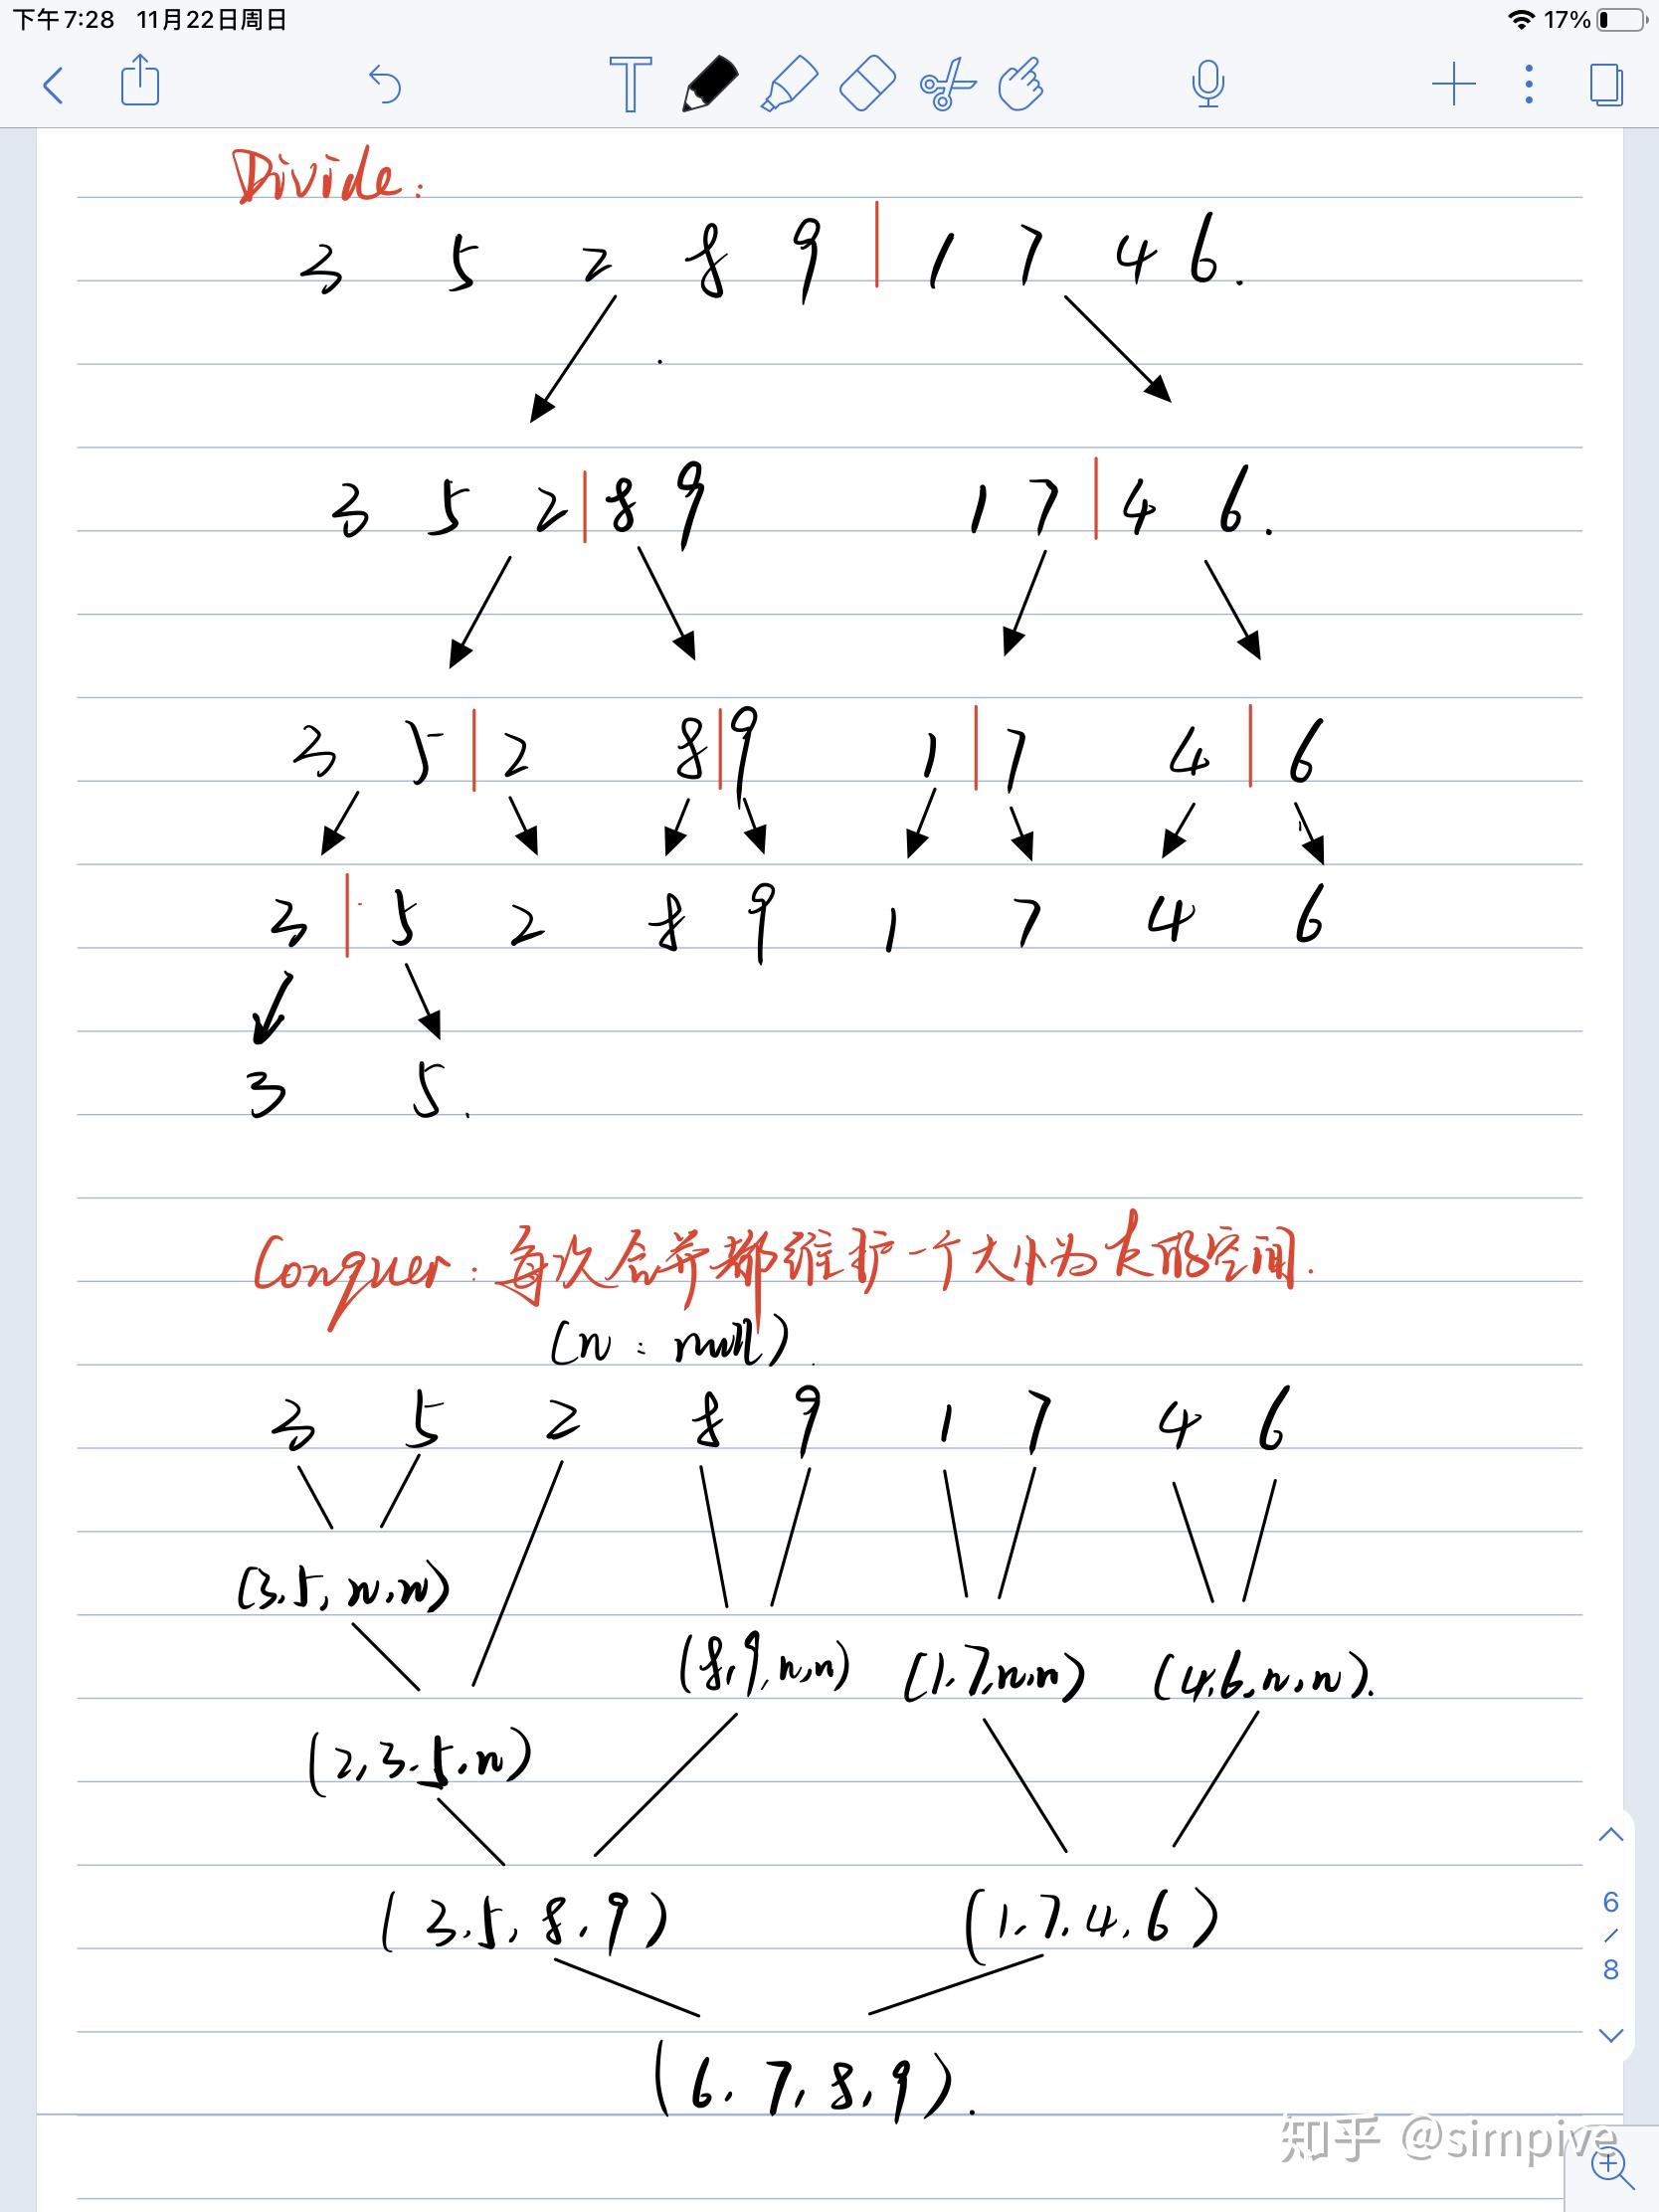 下午7:28 11月22日周日
17%
Divide:
3 5 2 8 9 | 1 7 4 6.
3 5 2 | 8 9 1 7 | 4 6.
3 5 | 2 8 | 9 1 | 7 4 | 6
3 | 5 2 8 9 1 7 4 6
3 5.
Conquer: 每次合并都维护一个大小为k的空间.
(n: null).
3 5 2 8 9 1 7 4 6
(3,5,n,n)
(8,9,n,n) (1,7,n,n) (4,6,n,n).
(2,3,5,n)
(3,5,8,9) (1,7,4,6)
(6,7,8,9).
6
/
8
知乎 @simpive